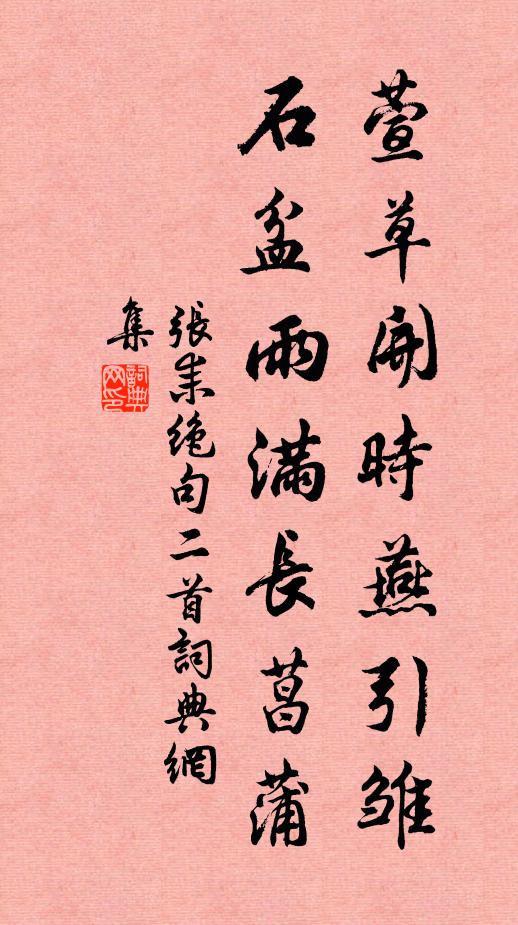 萱草開時燕引雛
石盆雨滿長菖蒲
張耒絶句二首詞典網
集
詞典網印